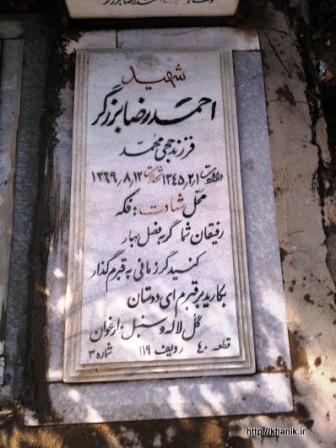 شهید
احمد رضا برزگر
فرزند حجی محمد
ولادت ۱۳۴۵٫۲٫۱ شهادت ۱۳۶۹٫۸٫۱۲
محل شهادت: فکه
رفیقان شما گر به فصل بهار
کنید گر زمانی به قبرم گذار
بکارید بر قبرم ای دوستان
گل لاله و سنبل و ارغوان
قطعه ۴۰ ردیف ۱۱۹ شماره ۳
http://khanik.ir